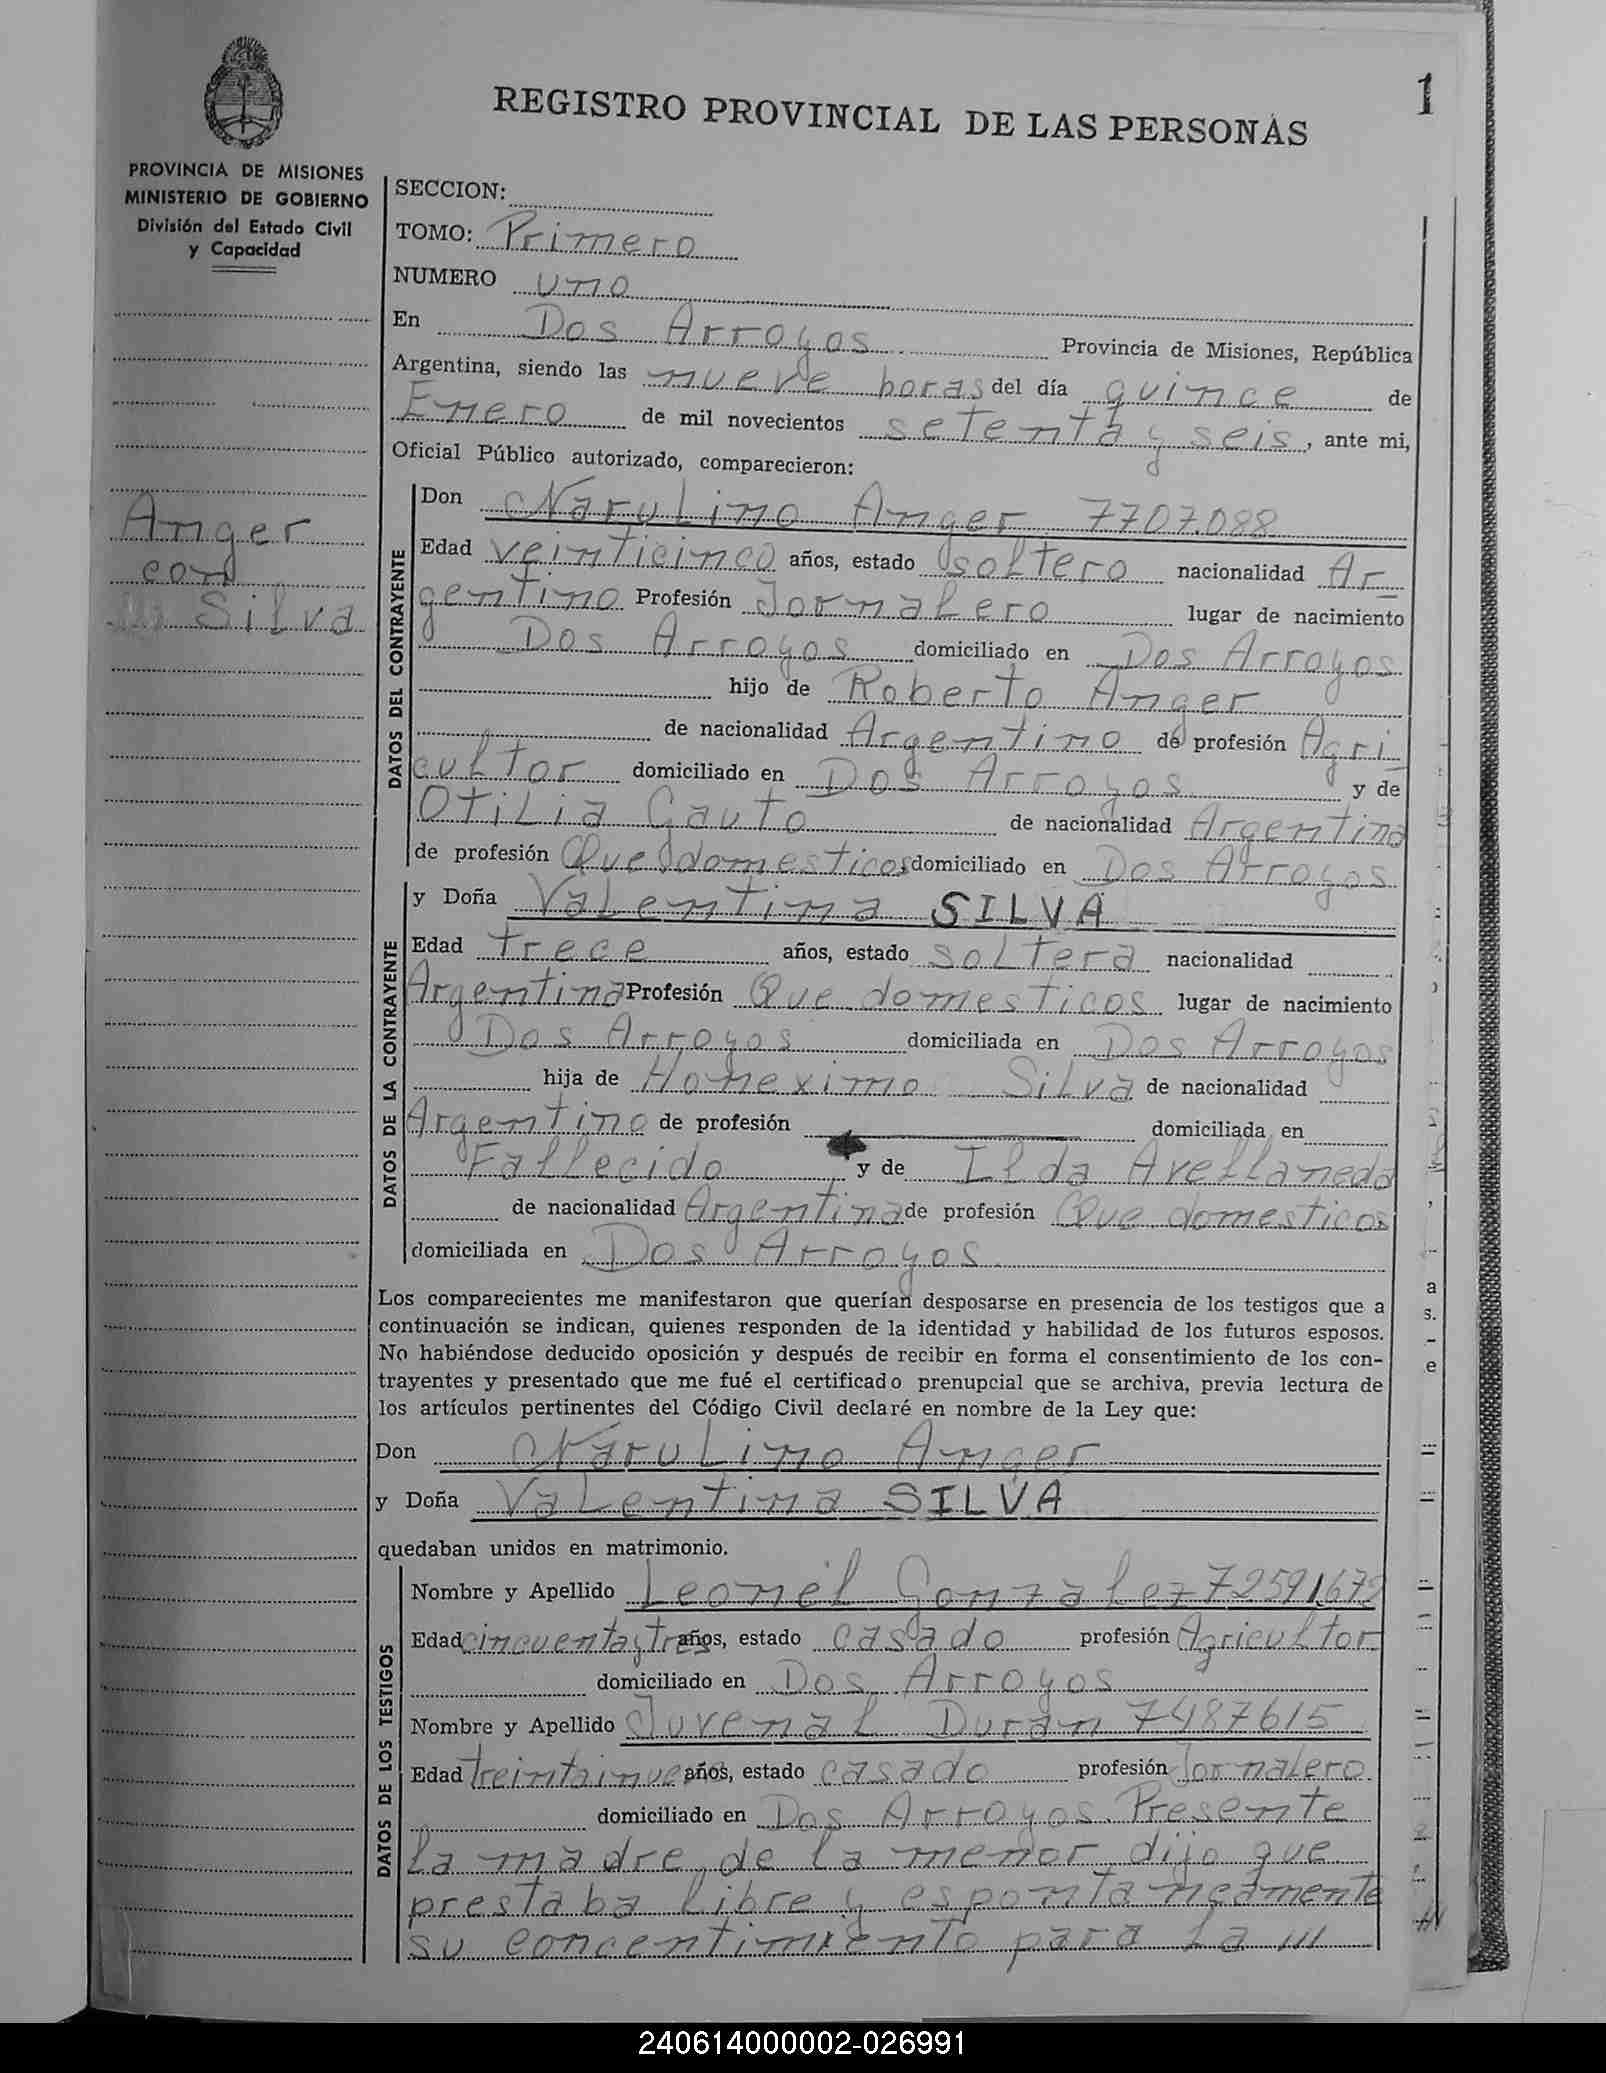 1
REGISTRO PROVINCIAL DE LAS PERSONAS
PROVINCIA DE MISIONES
MINISTERIO DE GOBIERNO
División del Estado Civil
y Capacidad
Anger
con
Silva
SECCION:
TOMO: Primero
NUMERO uno
En Dos Arroyos Provincia de Misiones, República
Argentina, siendo las nueve horas del día quince de
Enero de mil novecientos setenta y seis, ante mi,
Oficial Público autorizado, comparecieron:
DATOS DEL CONTRAYENTE
Don NaruLino Anger 7707.088
Edad veinticinco años, estado soltero nacionalidad Ar
gentino Profesión Jornalero lugar de nacimiento
Dos Arroyos domiciliado en Dos Arroyos
hijo de Roberto Anger
de nacionalidad Argentino de profesión Agri
cultor domiciliado en Dos Arroyos y de
Otilia Gauto de nacionalidad Argentina
de profesión Que domesticos domiciliado en Dos Arroyos
DATOS DE LA CONTRAYENTE
y Doña Valentina SILVA
Edad trece años, estado soltera nacionalidad
Argentina Profesión Que domesticos lugar de nacimiento
Dos Arroyos domiciliada en Dos Arroyos
hija de Silva de nacionalidad
Argentino de profesión domiciliada en
Fallecido y de Ilda Avellaneda
de nacionalidad Argentina de profesión Que domesticos
domiciliada en Dos Arroyos
Los comparecientes me manifestaron que querían desposarse en presencia de los testigos que a
continuación se indican, quienes responden de la identidad y habilidad de los futuros esposos.
No habiéndose deducido oposición y después de recibir en forma el consentimiento de los con-
trayentes y presentado que me fué el certificado prenupcial que se archiva, previa lectura de
los artículos pertinentes del Código Civil declaré en nombre de la Ley que:
Don NaruLino Anger
y Doña Valentina SILVA
quedaban unidos en matrimonio.
DATOS DE LOS TESTIGOS
Nombre y Apellido Leonel Gonzalez
Edad cincuenta y tres años, estado casado profesión Agricultor
domiciliado en Dos Arroyos
Nombre y Apellido Juvenal Duran 7487615
Edad treintainueve años, estado casado profesión Jornalero
domiciliado en Dos Arroyos. Presente
la madre de la menor dijo que
prestaba libre y espontaneamente
su concentimiento para la
240614000002-026991